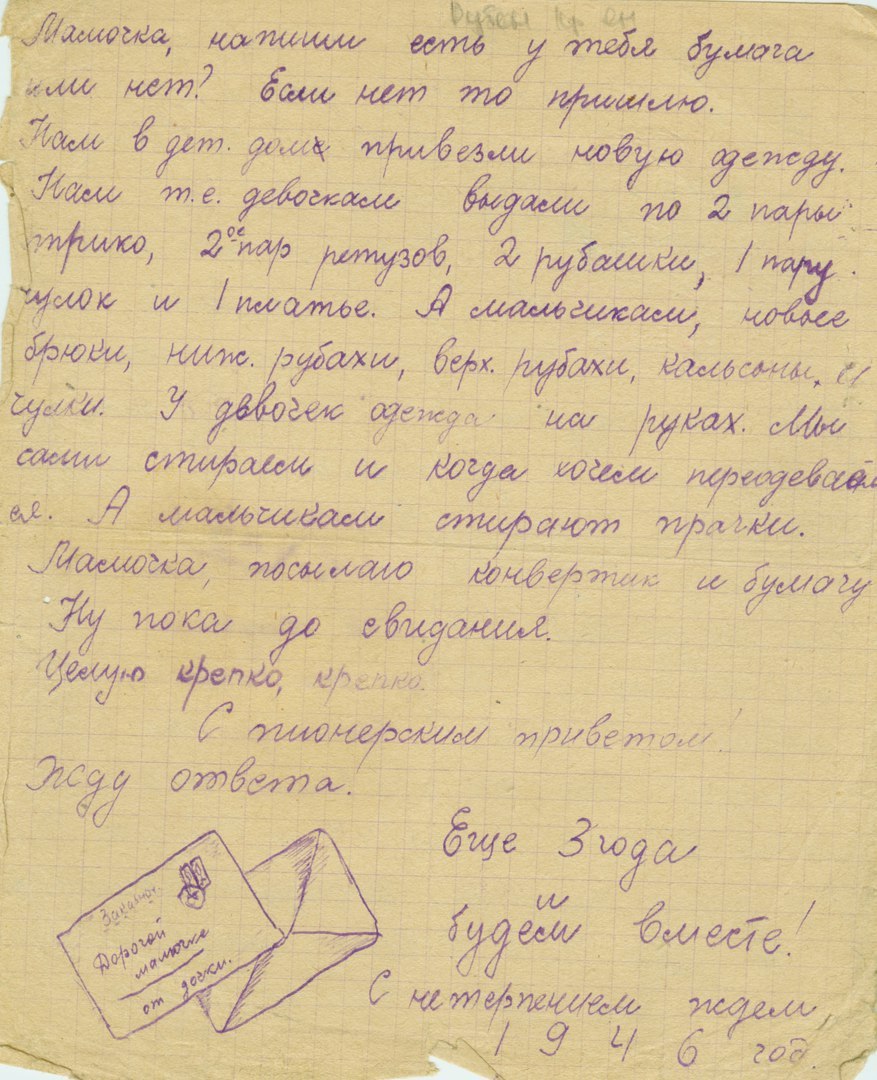 Мамочка, напиши есть у тебя бумага
или нет? Если нет то пришлю.
Нам в дет. доме привезли новую одежду.
Нам т.е. девочкам выдали по 2 пары
трико, 2ое пар ретузов, 2 рубашки, 1 пару
чулок и 1 платье. А мальчикам, новые
брюки, ниж. рубахи, верх. рубахи, кальсоны, и
чулки. У двочек одежда на руках. Мы
сами стираем и когда хочем переодеваем
ся. А мальчикам стирают прачки.
Мамочка, посылаю конвертик и бумагу
Ну пока до свидания.
Целую крепко, крепко.
С пионерским приветом!
Жду ответа.
Заказное
Дорогой
мамочке
от дочки.
Еще 3 года
и
будем вместе!
С нетерпением ждем,
1946 год.